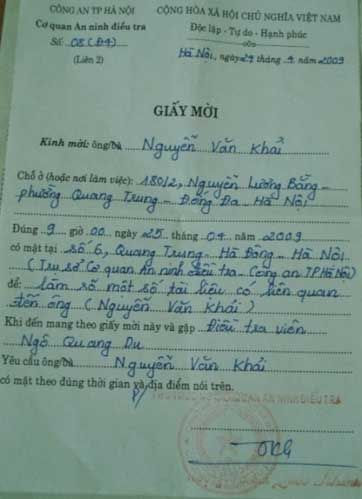 CÔNG AN TP HÀ NỘI
Cơ quan An ninh điều tra
Số: 08 (Đ4)
(Liên 2)
CỘNG HÒA XÃ HỘI CHỦ NGHĨA VIỆT NAM
Độc lập - Tự do - Hạnh phúc
Hà Nội, ngày 24 tháng 4 năm 2009
GIẤY MỜI
Kính mời: ông/bà Nguyễn Văn Khải
Chỗ ở (hoặc nơi làm việc): 180/2, Nguyễn Lương Bằng -
phường Quang Trung - Đống Đa - Hà Nội
Đúng 9 giờ 00 ngày 25 tháng 04 năm 2009
có mặt tại số 6, Quang Trung - Hà Đông - Hà Nội
(Trụ sở Cơ quan An ninh điều tra - Công an TP. Hà Nội)
để: làm số một số tài liệu có liên quan
đến ông (Nguyễn Văn Khải)
Khi đến mang theo giấy mời này và gặp Điều tra viên
Ngô Quang Du
Yêu cầu ông/bà Nguyễn Văn Khải
có mặt theo đúng thời gian và địa điểm nói trên.
CƠ QUAN AN NINH ĐIỀU TRA